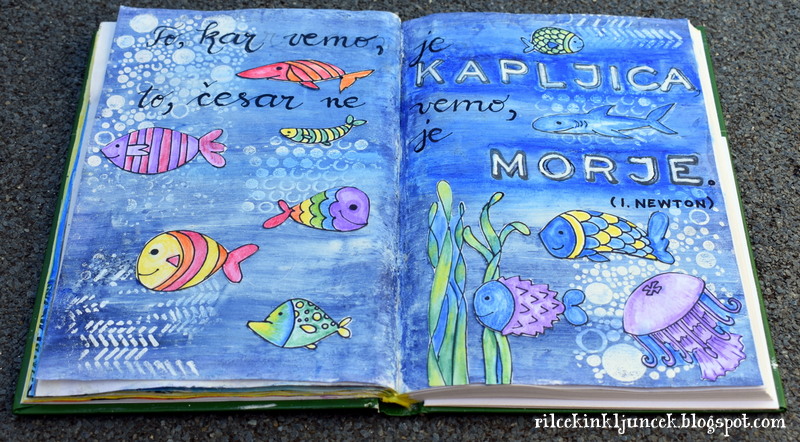 To, kar vemo, je
KAPLJICA,
to, česar ne vemo,
je
MORJE.
(I. NEWTON)
rilcekinkljuncek.blogspot.com